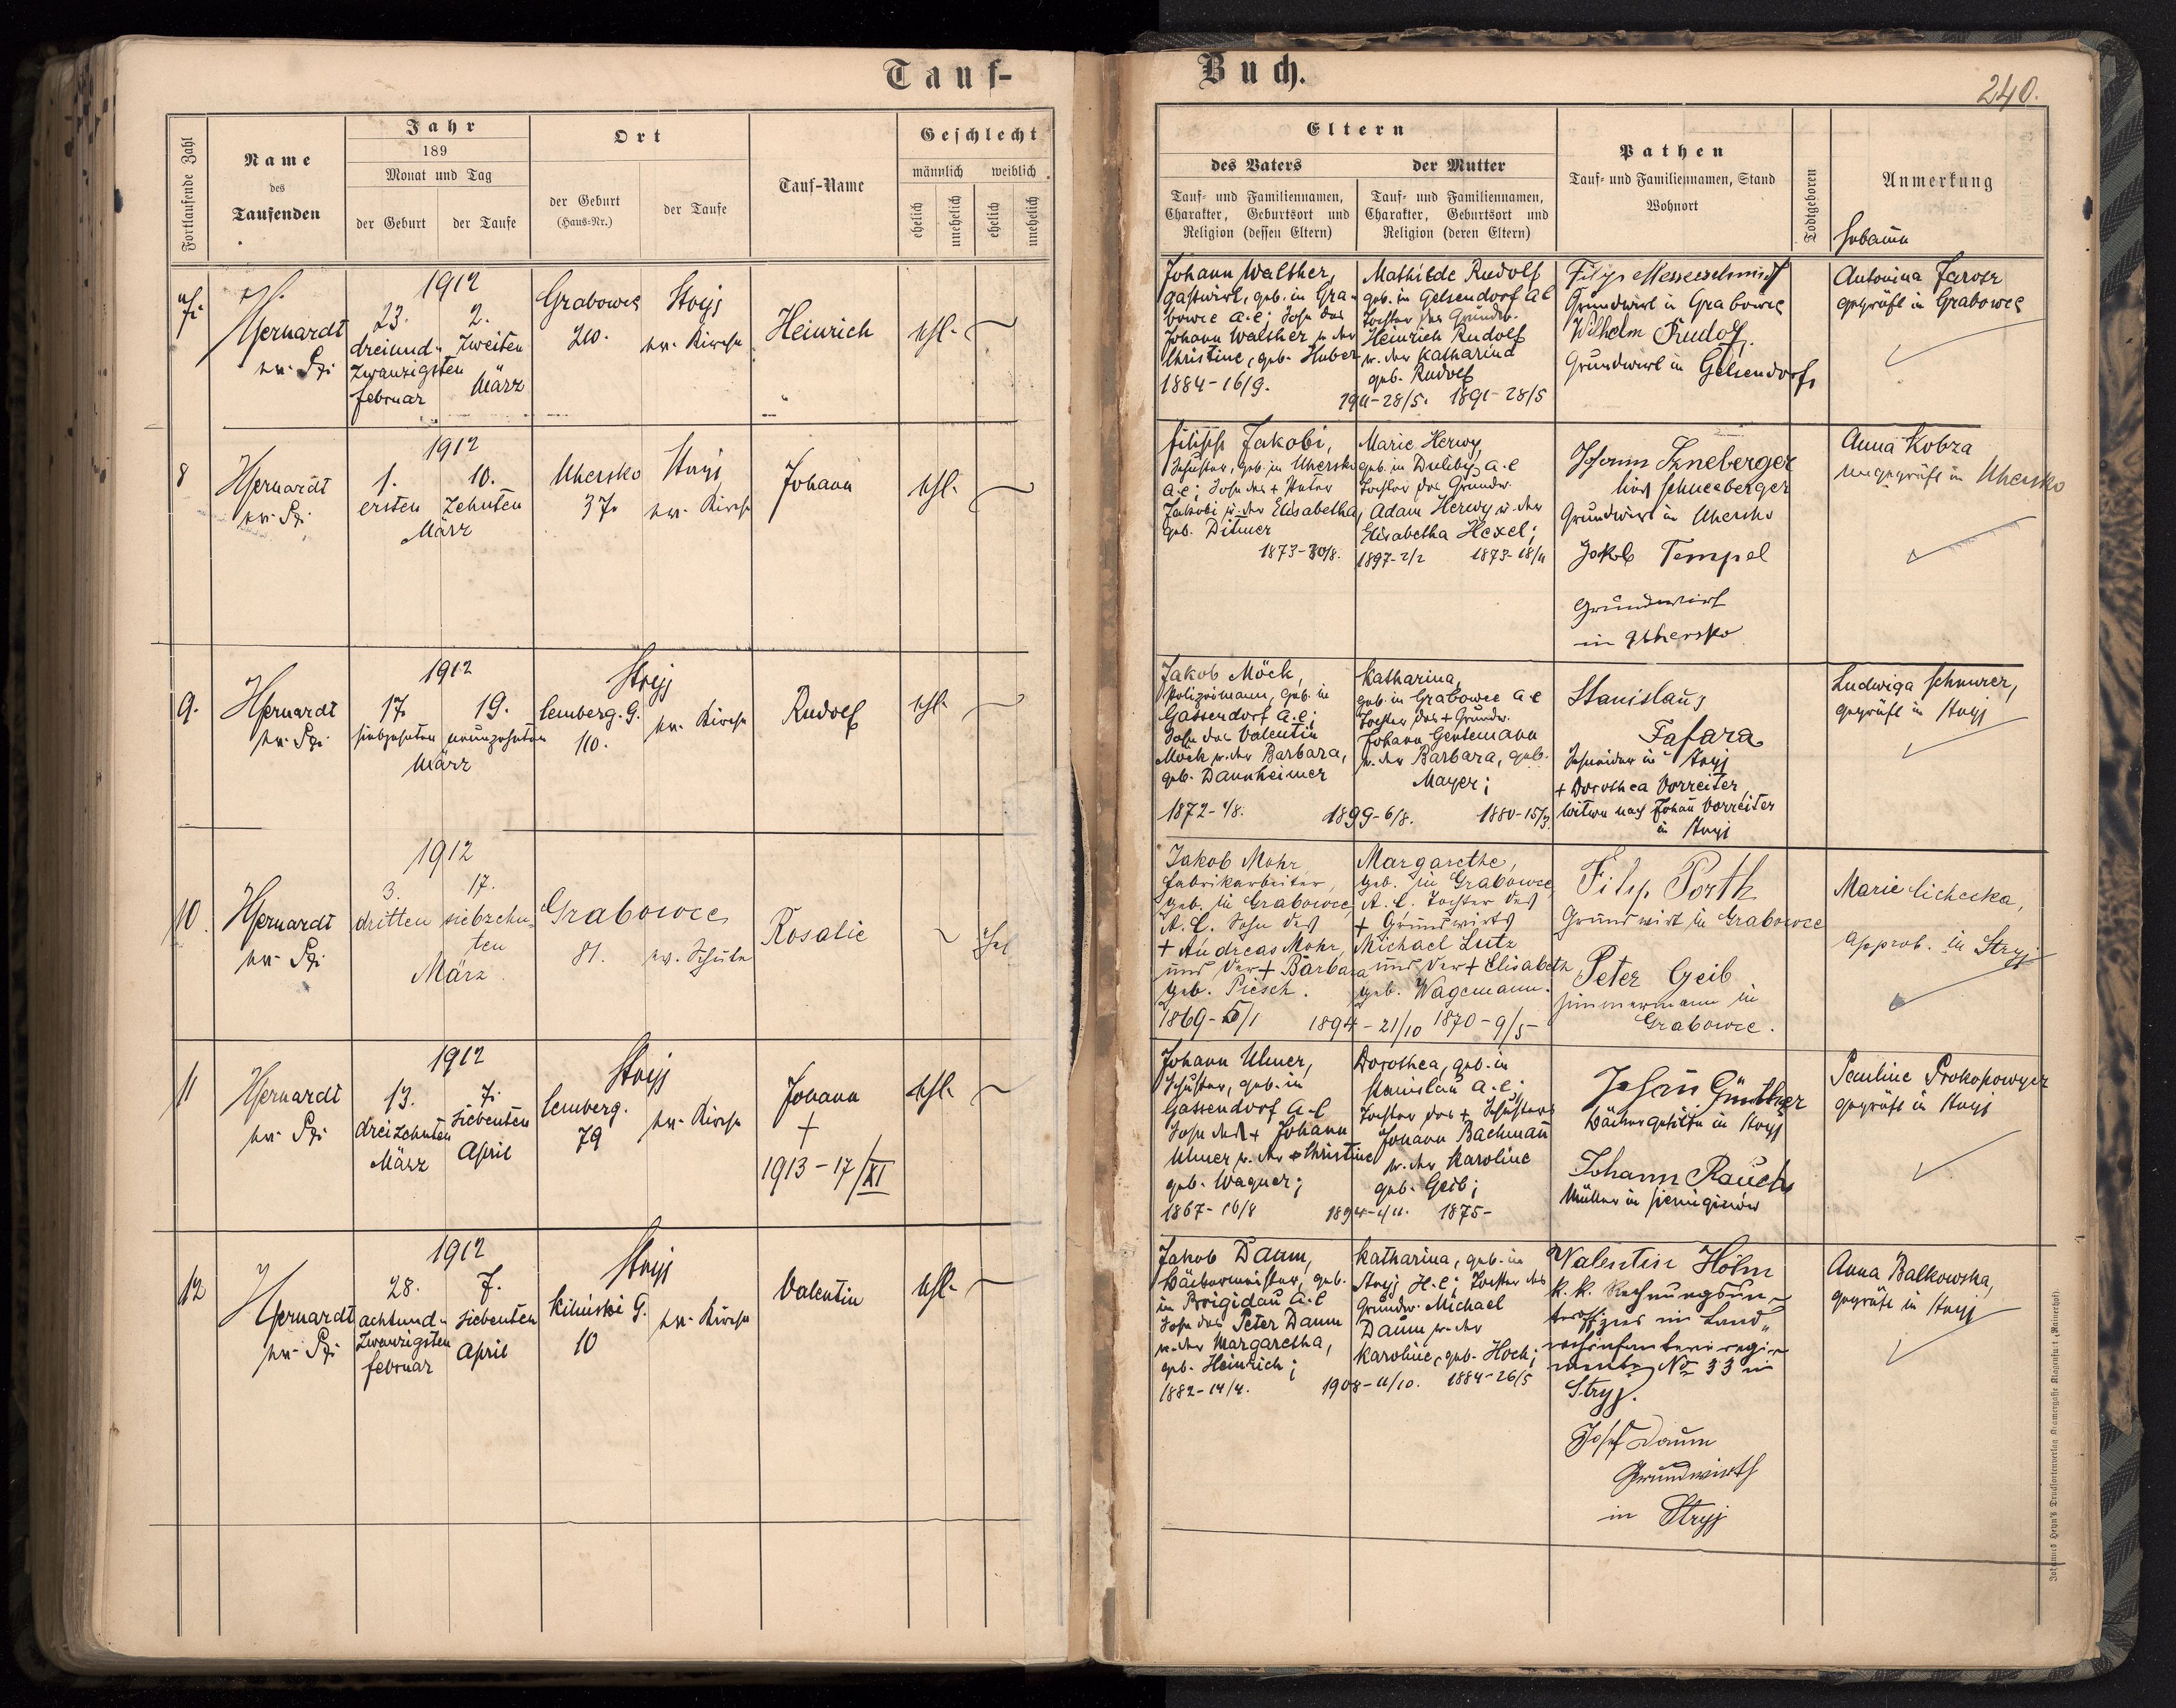 Tauf-
Buch.
240.
Fortlaufende Zahl
Name
des
Taufenden
Jahr
189
Monat und Tag
der Geburt
der Taufe
Ort
der Geburt
(Haus-Nr.)
der Taufe
Tauf-Name
Geschlecht
männlich
weiblich
ehelich
unehelich
ehelich
unehelich
Eltern
des Vaters
der Mutter
Tauf- und Familiennamen,
Charakter, Geburtsort und
Religion (dessen Eltern)
Tauf- und Familiennamen,
Charakter, Geburtsort und
Religion (deren Eltern)
Pathen
Tauf- und Familiennamen, Stand
Wohnort
Todtgeboren
Anmerkung
Hebamme
7.
1912
23.
dreiund-
zwanzigsten
Februar
2.
zweiten
März
Grabowce
Stryj
ev. Kirche
Heinrich
ehl.
Johann Walther,
Gastwirt, geb. in Gra-
bowce A.C; Sohn des
Johann Walther u. der
Christine, geb. Huber
1884-16/9.
1911-28/5.
Mathilde Rudolf
geb. in Gelsendorf A C
Tochter des Grundw.
Heinrich Rudolf
u. der Katharina
geb. Rudolf
1891-28/5
Filip Messerschmidt
Grundwirt in Grabowce
Wilhelm Rudolf
Grundwirt in Gelsendorf
Antonina Jarosz
geprüft in Grabowce
8
1912
1.
ersten
10.
zehnten
März
Uhersko
37.
Stryj
ev. Kirche
Johann
ehl.
Filipp Jakobi,
Schuster, geb. in Uhersko
A.C; Sohn des + Peter
Jakobi u. der Elisabetha,
geb. Ditmer
1873-30/8.
1897-2/2
Marie Herwy,
geb. in Duliby A.C
Tochter des Grundw.
Adam Herwy u. der
Elisabetha Hexel;
1873-18/11
Johann Szneberger
lies Schneeberger
Grundwirt in Uhersko
Jakob Tempel
Grundwirt
in Uhersko
Anna Kobza
ungeprüft in Uhersko
9.
1912
17.
siebzehnten
19.
neunzehnten
März
Stryj
Lemberg. G.
110.
ev. Kirche
Rudolf
ehl.
Jakob Möck,
Polizeimann, geb. in
Gassendorf A.C;
Sohn des Valentin
Möck u. der Barbara,
geb. Dannheimer
1872-4/8.
1899-6/8.
Katharina,
geb. in Grabowce A C
Tochter des + Grundw.
Johann Gentemann
u. der Barbara, geb.
Mayer;
1880-15/3.
Stanislaus
Fafara
Schneider in Stryj
+ Dorothea Vorreiter,
Witwe nach Johann Vorreiter
in Stryj
Ludwiga Schnurer,
geprüft in Stryj
10.
1912
3.
dritten
17.
siebzehn-
ten
März
Grabowce
81.
ev. Schule
Rosalie
Jakob Mohr
Fabrikarbeiter,
geb. in Grabowce,
A.C. Sohn des
+ Andreas Mohr
und der + Barbara
geb. Piesch.
1869-5/1
1894-21/10
Margarethe,
geb. in Grabowce,
A.C. Tochter des
+ Grundwirts
Michael Lutz
und der + Elisabeth
geb. Wagemann.
1870-9/5-
Filip Porth
Grundwirt in Grabowce
Peter Geib
Zimmermann in
Grabowce.
Marie Lichecka,
approb. in Stryj
11
1912
13.
dreizehnten
März
7.
siebenten
April
Stryj
Lemberg.
79
ev. Kirche
Johann
+
1913-17/XI
ehl.
Johann Ulmer,
Schuster, geb. in
Gassendorf A.C
Sohn des + Johann
Ulmer u. der + Christine
geb. Wagner;
1867-16/8
Dorothea, geb. in
Stanislau A.C;
Tochter des + Schusters
Johann Bachmann
u. der Karoline
geb. Geib;
1875-
Johann Günther
Bäckergehilfe in Stryj
Johann Rauch
Müller in
Pauline Prokopowycz
geprüft in Stryj
12
1912
28.
achtund-
zwanzigsten
Februar
7.
siebenten
April
Stryj
Kilinski G.
10
ev. Kirche
Valentin
ehl.
Jakob Daum,
Bäckermeister, geb.
in Brigidau A.C
Sohn des Peter Daum
u. der Margaretha,
geb. Heinrich;
1882-14/4.
1908-11/10.
Katharina, geb. in
Stryj H.C; Tochter des
Grundw. Michael
Daum u. der
Karoline, geb. Hoch;
1884-26/5
Valentin Höhn
K. K. Rechnungsun-
teroffizier im Land-
wehrinfanterieregi-
mente No 33 in
Stryj.
Josef Daum
Grundwirth
in Stryj
Anna Balkowska,
geprüft in Stryj